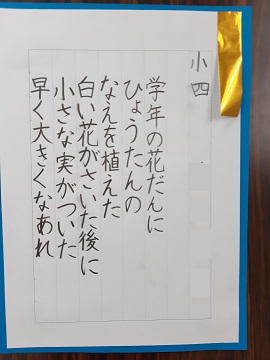 小四
学年の花だんに
ひょうたんの
なえを植えた
白い花がさいた後に
小さな実がついた
早く大きくなあれ